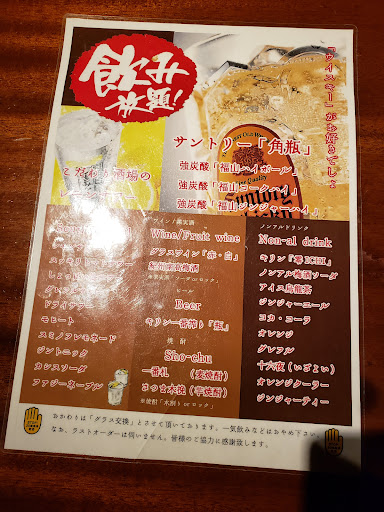 飲み放題!
「ウイスキー」がお好きでしょ
サントリー「角瓶」
こだわり酒場の
強炭酸「福山ハイボール」
強炭酸「福山コークハイ」
強炭酸「福山ジンジャーハイ」
スッキリ
ドライサワー
モヒート
スミノフレモネード
ジントニック
カシスソーダ
ファジーネーブル
ワイン/果実酒
Wine/Fruit wine
グラスワイン「赤・白」
紀州南高梅酒
ビール
Beer
キリン一番搾り「瓶」
焼酎
Sho-chu
一番札 (麦焼酎)
さつま木挽 (芋焼酎)
※焼酎「水割り or ロック」
ノンアルドリンク
Non-al drink
キリン「零ICHI」
ノンアル梅酒ソーダ
アイス烏龍茶
ジンジャーエール
コカ・コーラ
オレンジ
グレフル
十六夜(いざよい)
オレンジクーラー
ジンジャーティー
おかわりは「グラス交換」とさせて頂いております。一気飲みなどはおやめ下さい。
なお、ラストオーダーは伺いません。皆様のご協力に感謝致します。